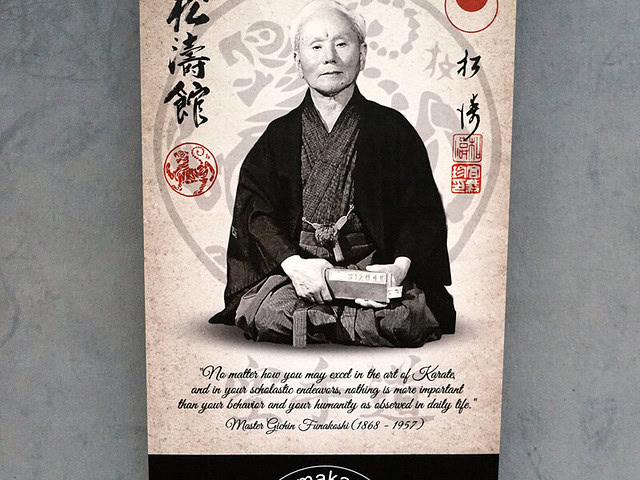 松濤館
松濤
"No matter how you may excel in the art of Karate,
and in your scholastic endeavors, nothing is more important
than your behavior and your humanity as observed in daily life."
Master Gichin Funakoshi (1868 - 1957)
maka